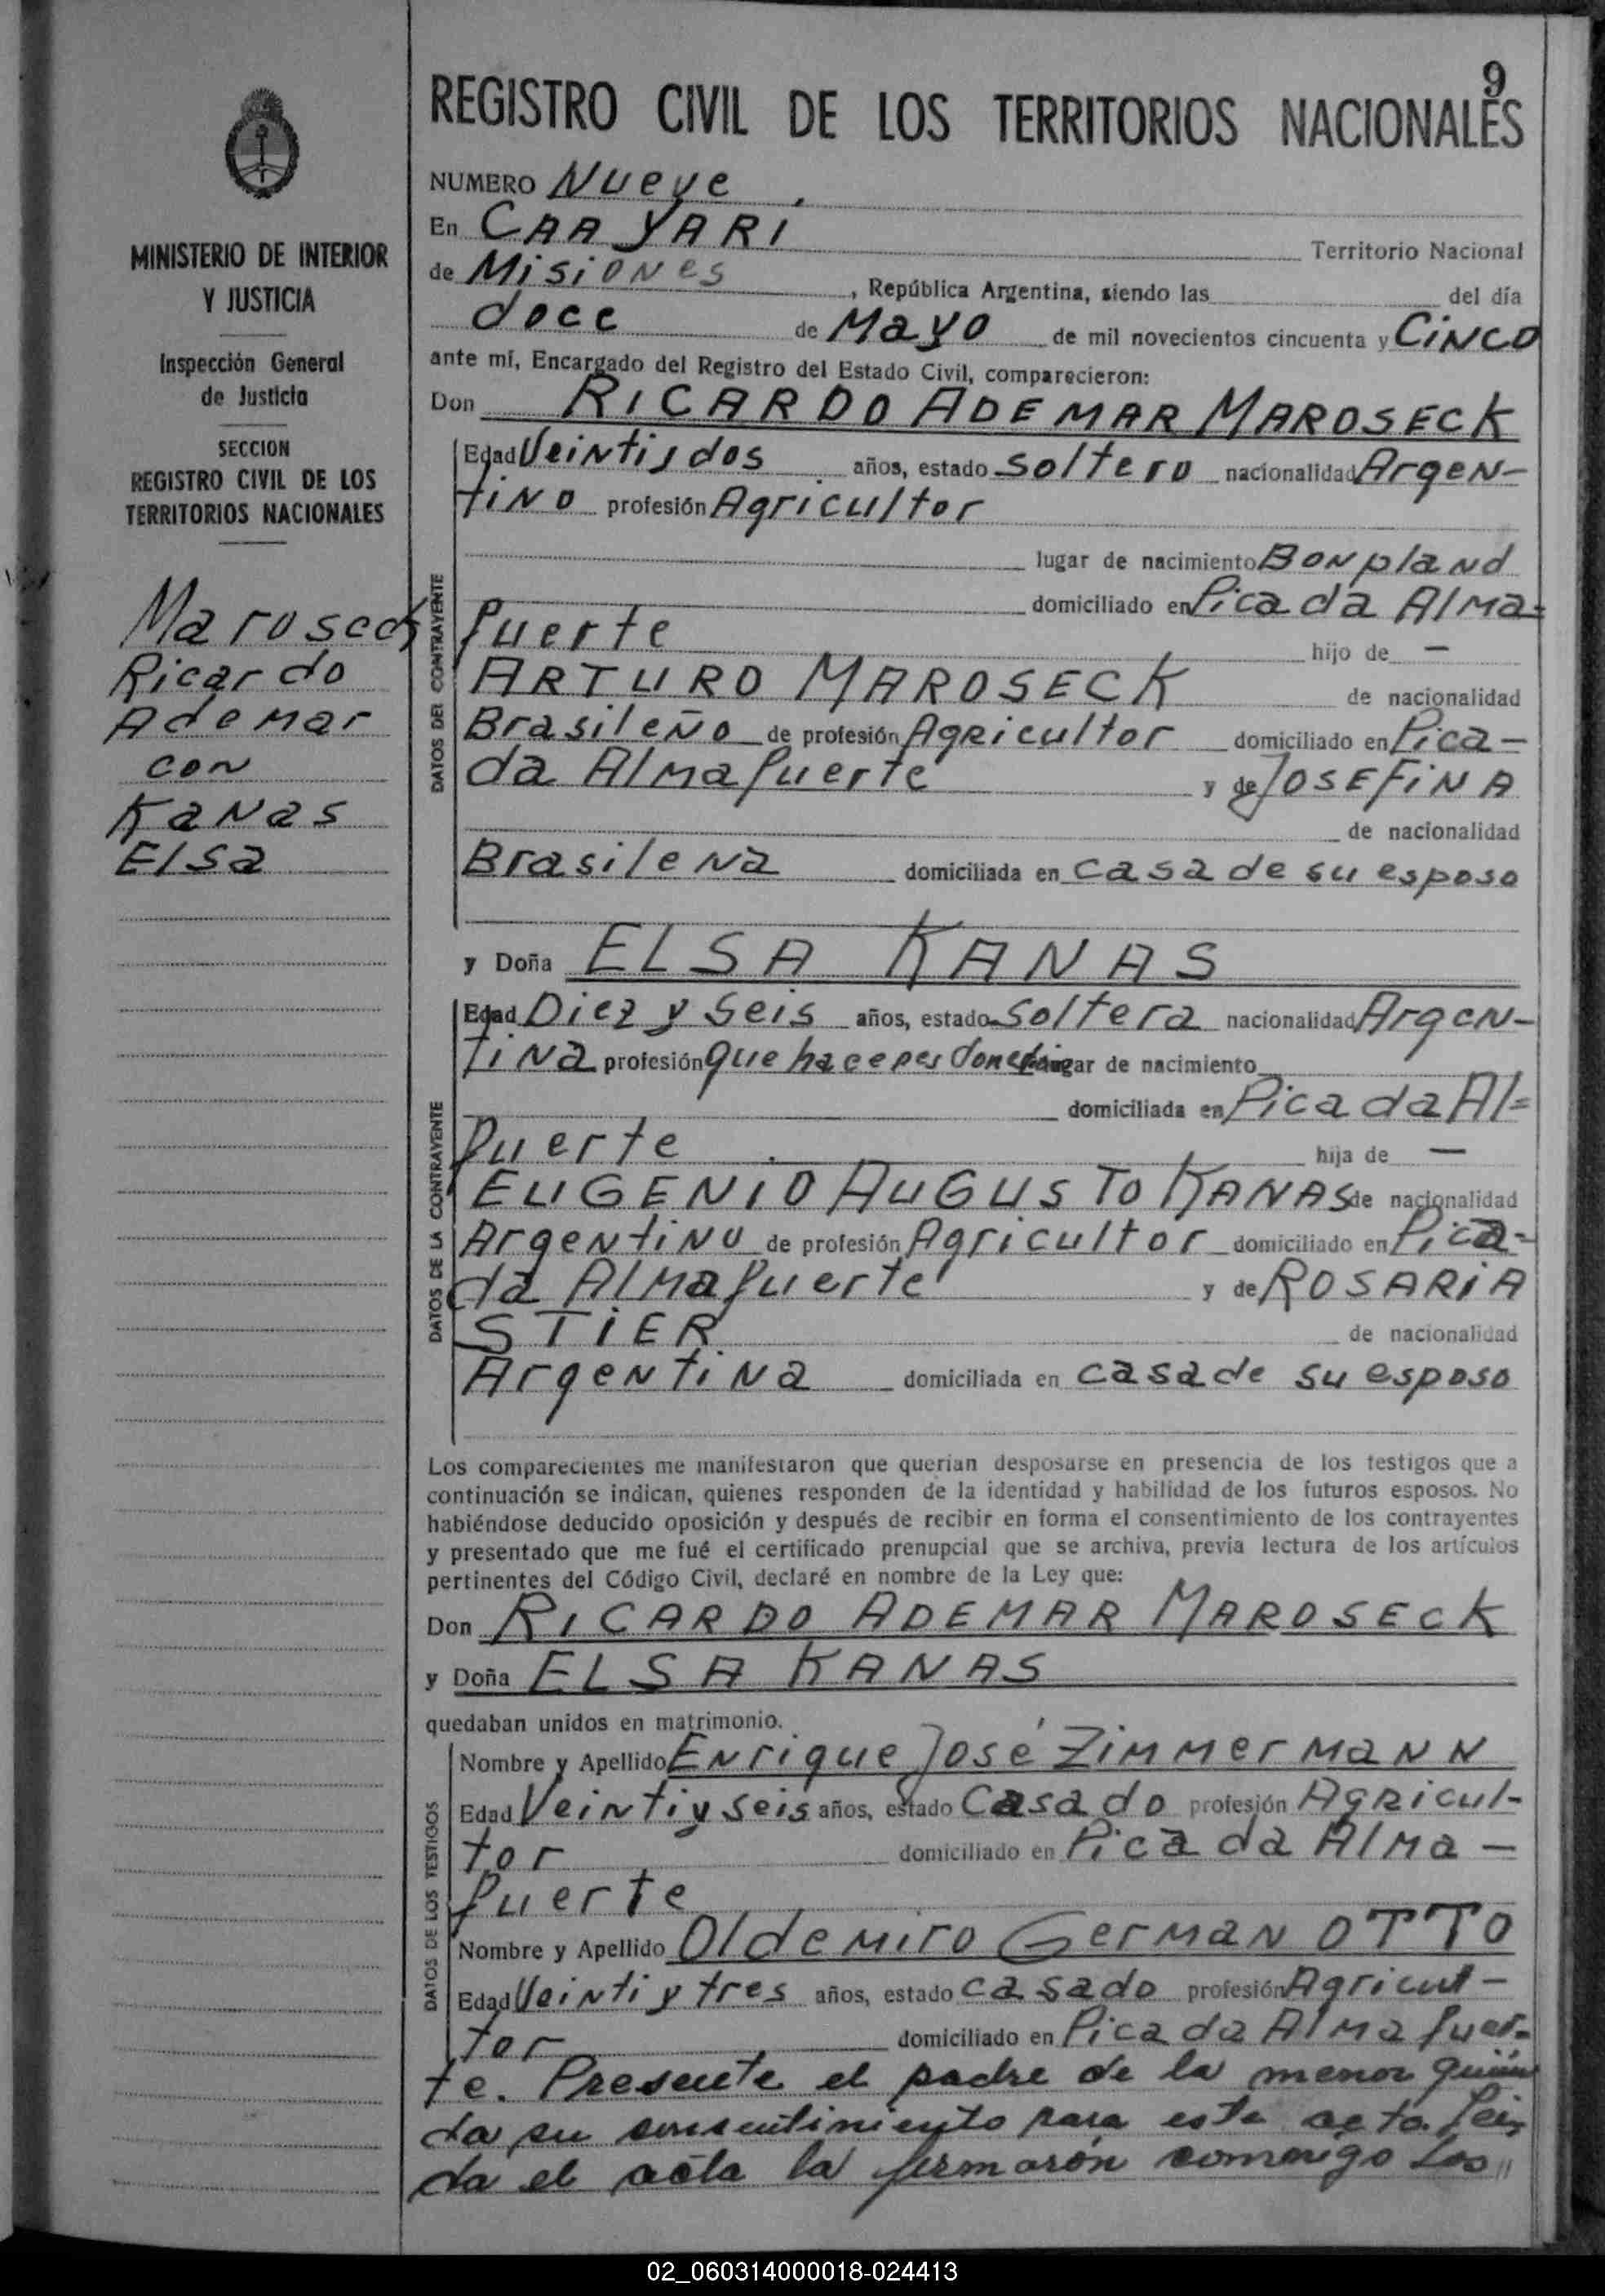 9
REGISTRO CIVIL DE LOS TERRITORIOS NACIONALES
MINISTERIO DE INTERIOR
Y JUSTICIA
Inspección General
de Justicia
SECCION
REGISTRO CIVIL DE LOS
TERRITORIOS NACIONALES
Maroseck
Ricardo
Ademar
con
Kanas
Elsa
NUMERO Nueve
En CAA YARI Territorio Nacional
de Misiones, República Argentina, siendo las del día
doce de Mayo de mil novecientos cincuenta y CINCO
ante mí, Encargado del Registro del Estado Civil, comparecieron:
Don RICARDO ADEMAR MAROSECK
DATOS DEL CONTRAYENTE
Edad Veintisdos años, estado soltero nacionalidad Argen-
tino profesión Agricultor
lugar de nacimiento Bonpland
domiciliado en Picada Alma=
fuerte hijo de —
ARTURO MAROSECK de nacionalidad
Brasileño de profesión Agricultor domiciliado en Pica-
da Almafuerte y de JOSEFINA
de nacionalidad
Brasilena domiciliada en casa de su esposo
y Doña ELSA KANAS
DATOS DE LA CONTRAYENTE
Edad Diez y seis años, estado soltera nacionalidad Argen-
tina profesión que haceres lugar de nacimiento
domiciliada en Picada Al=
fuerte hija de —
EUGENIO AUGUSTO KANAS de nacionalidad
Argentino de profesión Agricultor domiciliado en Pica-
da Almafuerte y de ROSARIA
STIER de nacionalidad
Argentina domiciliada en casa de su esposo
Los comparecientes me manifestaron que querían desposarse en presencia de los testigos que a
continuación se indican, quienes responden de la identidad y habilidad de los futuros esposos. No
habiéndose deducido oposición y después de recibir en forma el consentimiento de los contrayentes
y presentado que me fué el certificado prenupcial que se archiva, previa lectura de los artículos
pertinentes del Código Civil, declaré en nombre de la Ley que:
Don RICARDO ADEMAR MAROSECK
y Doña ELSA KANAS
quedaban unidos en matrimonio.
DATOS DE LOS TESTIGOS
Nombre y Apellido Enrique José Zimmermann
Edad Veinti y seis años, estado Casado profesión Agricul-
tor domiciliado en Picada Alma-
fuerte
Nombre y Apellido Oldemiro German OTTO
Edad Veinti y tres años, estado casado profesión Agricul-
tor domiciliado en Picada Almafuer-
te. Presente el padre de la menor quién
da su consentimiento para este acto. Lei,
da el acta la firmarón comongo los"
02_060314000018-024413